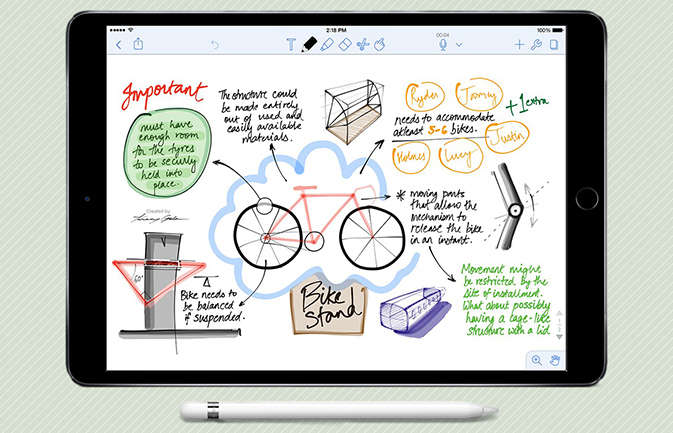 2:18 PM
100%
00:04
T
Important
must have
enough room
for the tyres
to be securly
held into
place.
Created by
The structure could
be made entirely
out of used and
easily available
materials.
Ryder
Tommy
+1 extra
needs to accommodate
atleast 5-6 bikes.
Justin
Holmes
Lucy
* moving parts
that allow the
mechanism to
release the bike
in an instant.
60°
Bike needs to
be balanced
if suspended.
Bike
Stand
Movement might
be restricted by the
site of installment.
What about possibly
having a cage-like
structure with a lid